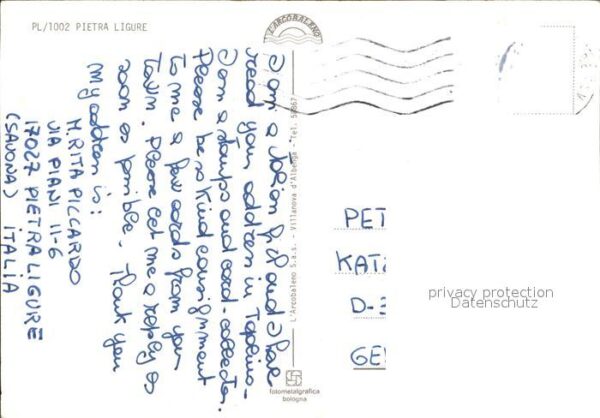 PL/1002 PIETRA LIGURE
L'ARCOBALENO
I am a italian girl and I have
read your address in Topolino.
I am a stamps and card-collector.
Please be so kind consignment
to me a few cards from your
town. Please let me a reply as
soon as possible. Thank you
My address is:
M.RITA PICCARDO
VIA PIANI 11-6
17027 PIETRA LIGURE
(SAVONA) ITALIA
L'Arcobaleno S.a.s. - Villanova d'Albenga - Tel.
PET
KAT
D-3
GE
privacy protection
Datenschutz
fotometalgrafica
bologna